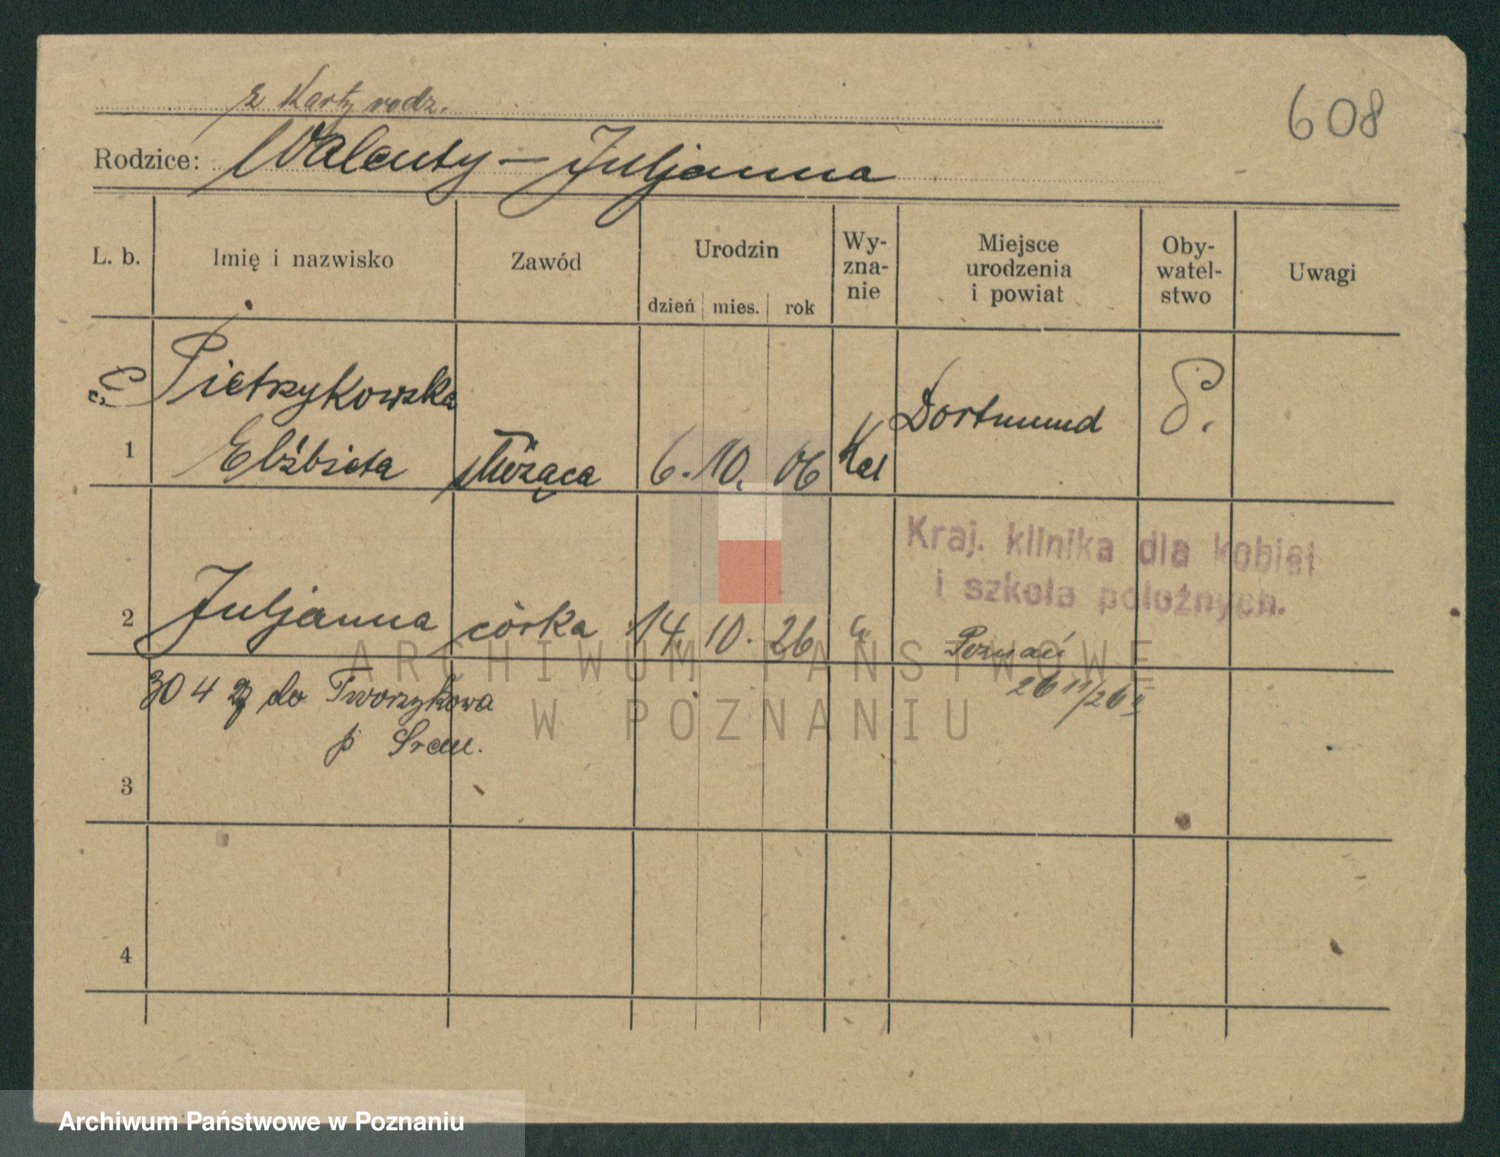 z Karty rodz.
608
Rodzice: Walenty – Juljanna
L. b. Imię i nazwisko Zawód Urodzin Wy- Miejsce Oby- Uwagi
zna- urodzenia watel-
nie i powiat stwo
dzień mies. rok
Pietrzykowska Dortmund P.
1 Elżbieta służąca 6. 10. 06 Kat
Kraj. klinika dla kobiet
i szkoła położnych.
2 Juljanna córka 14. 10. 26 " Poznań
30 4 27 do Tworzykowa 26 11/26
p Śrem.
3
4
ARCHIWUM PAŃSTWOWE
W POZNANIU
Archiwum Państwowe w Poznaniu